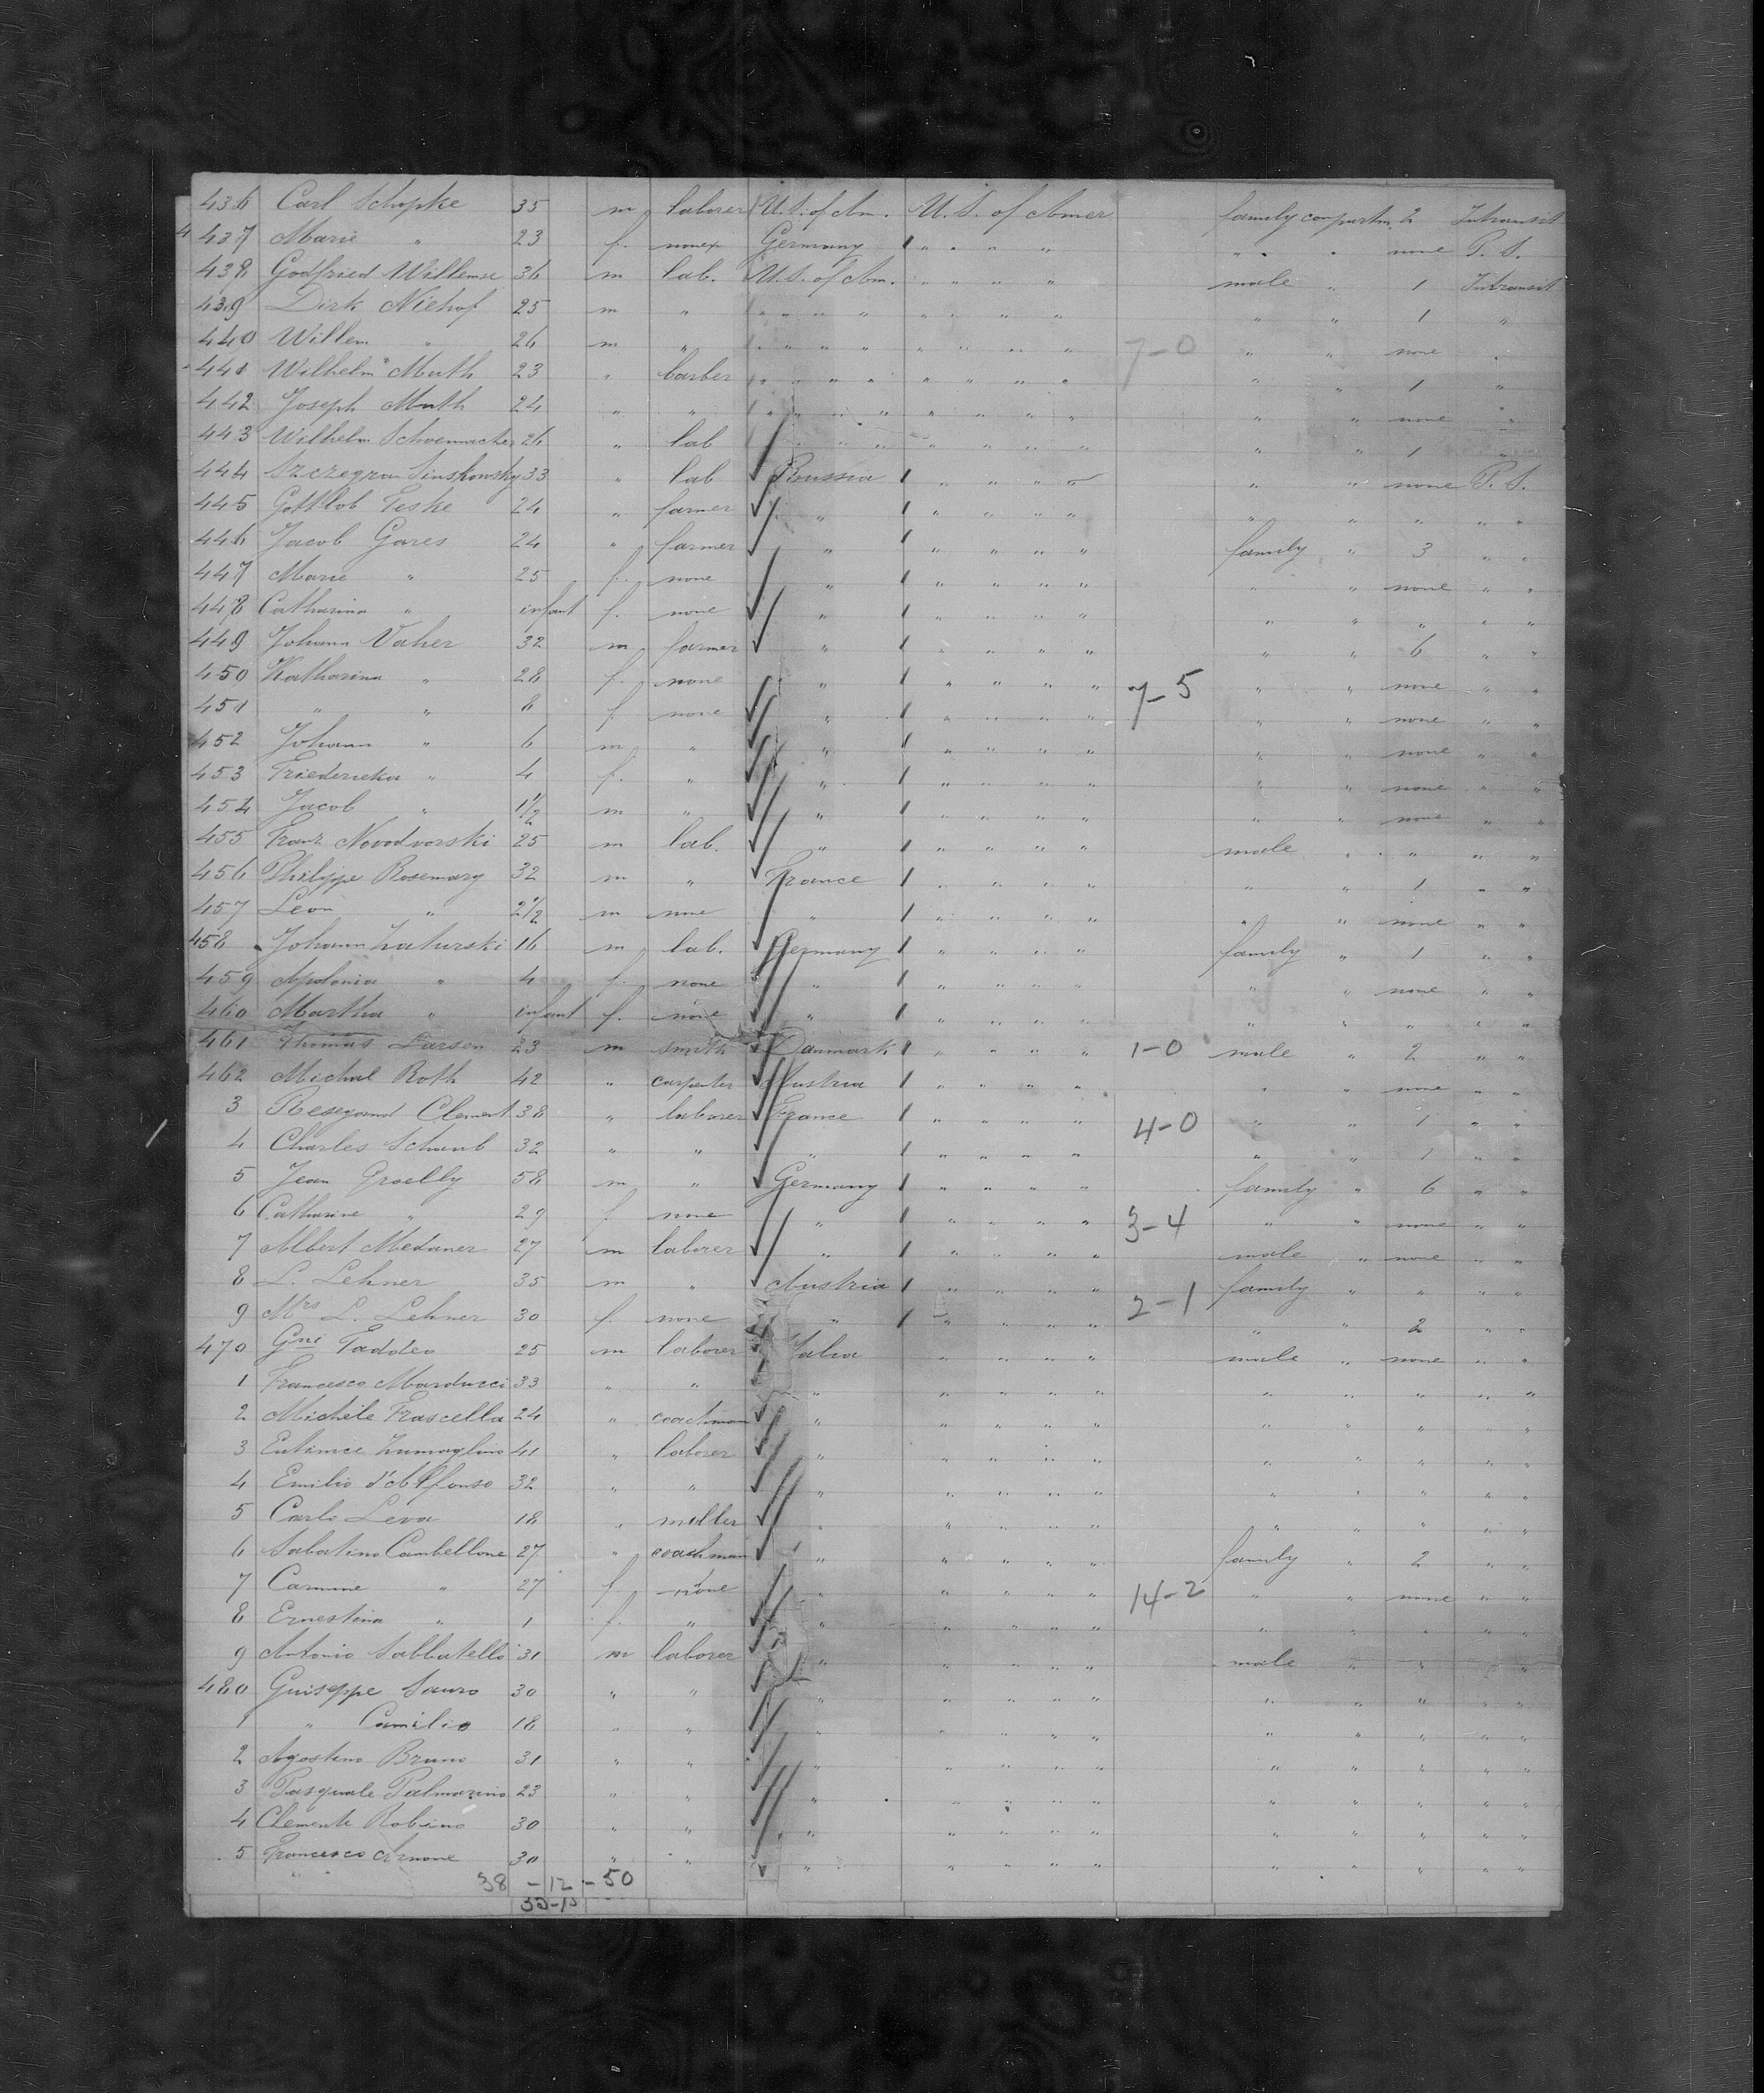 436 Carl Schopke 35 m laborer U.S. of Am. U.S. of Amer family compartm. 2 Intransit
4 437 Marie " 23 f. none Germany " " " " " " " none P. S.
438 Godfried Willemse 36 m lab. U.S. of Am. " " " " male " 1 Intransit
439 Dirk Niehof 25 m " " " " " " " " " " " 1 "
440 Willem " 26 m " " " " " " " " " 7-0 " " none "
441 Wilhelm Muth 23 " barber " " " " " " " " " " 1 "
442 Joseph Muth 24 " " " " " " " " " " " " none "
443 Wilhelm Schoemacher 26 " lab " " " " " " " " " 1 "
444 Sinskonsky 33 " lab Russia " " " " " " none P. S.
445 Gottlob Teske 24 " farmer " " " " " " " " " "
446 Jacob Gares 24 " farmer " " " " " family " 3 " "
447 Marie " 25 f. none " " " " " " " none " "
448 Catharina " infant f. none " " " " " " " " " "
449 Johann Vaher 32 m farmer " " " " " " " 6 " "
450 Katharina " 28 f. none " " " " " 7-5 " " none " "
451 " " 8 f none " " " " " " " none " "
452 Johann " 6 m " " " " " " " " none " "
453 Friedericka " 4 f. " " " " " " " " none " "
454 Jacob " 1 1/2 m " " " " " " " " none " "
455 Franz Novodvorski 25 m lab. " " " " " male " " " "
456 Philippe Rosemary 32 m " France " " " " " " 1 " "
457 Leon " 2 1/2 m none " " " " " " " none " "
458 Johann Zaturski 16 m lab. Germany " " " " family " 1 " "
459 Apolonia " 4 f. none " " " " " " " none " "
460 Martha " infant f. none " " " " " " " " " "
461 Thomas Larsen 23 m smith Danmark " " " " 1-0 male " 2 " "
462 Michal Roth 42 " carpenter Austria " " " " " " none " "
3 Clement 38 " laborer France " " " " 4-0 " " 1 " "
4 Charles Schaub 32 " " " " " " " " " 1 " "
5 Jean Groelly 58 m " Germany " " " " family " 6 " "
6 Catharine " 29 f none " " " " " 3-4 " " none " "
7 Albert Medaner 27 m laborer " " " " " male " none " "
8 L. Lehner 35 m " Austria " " " " family " " " "
9 Mrs L. Lehner 30 f. none " " " " " 2-1 " " 2 " "
470 Gni Taddeo 25 m laborer Italia " " " " male " none " "
1 Francesco Marducci 33 " " " " " " " " " " " "
2 Michele Frascella 24 " coachman " " " " " " " " " "
3 Zumaglino 41 " laborer " " " " " " " " " "
4 Emilio d'Alfonso 32 " " " " " " " " " " " "
5 Carlo Leva 18 " miller " " " " " " " " " "
6 Sabatino Cambellone 27 " coachman " " " " " family " 2 " "
7 Carmine " 27 f none " " " " " 14-2 " " none " "
8 Ernestina " 1 f. " " " " " " " " " " "
9 Antonio Sabbatelli 31 m laborer " " " " " male " " " "
480 Guiseppe Sauro 30 " " " " " " " " " " " "
1 " Camilio 18 " " " " " " " " " " " "
2 Agostino Bruno 31 " " " " " " " " " " " "
3 Pasquale Palmarino 23 " " " " " " " " " " " "
4 Clemente Robino 30 " " " " " " " " " " " "
5 Francesco Arnone 30 " " " " " " " " " " " "
38 - 12 - 50